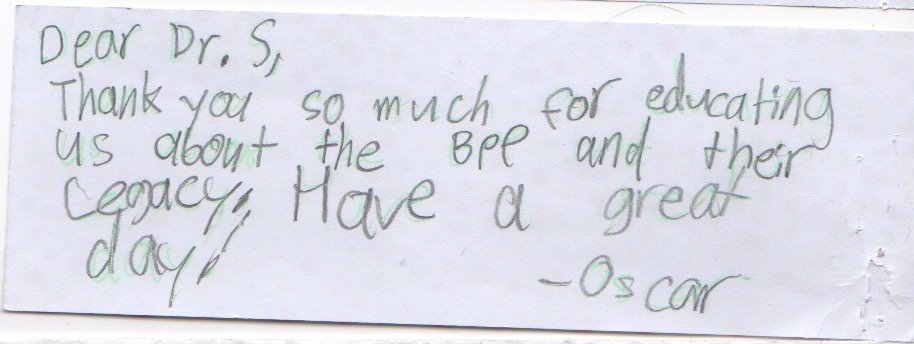 Dear Dr. S,
Thank you so much for educating
us about the Bee and their
Legacy, Have a great
day!
-Oscar